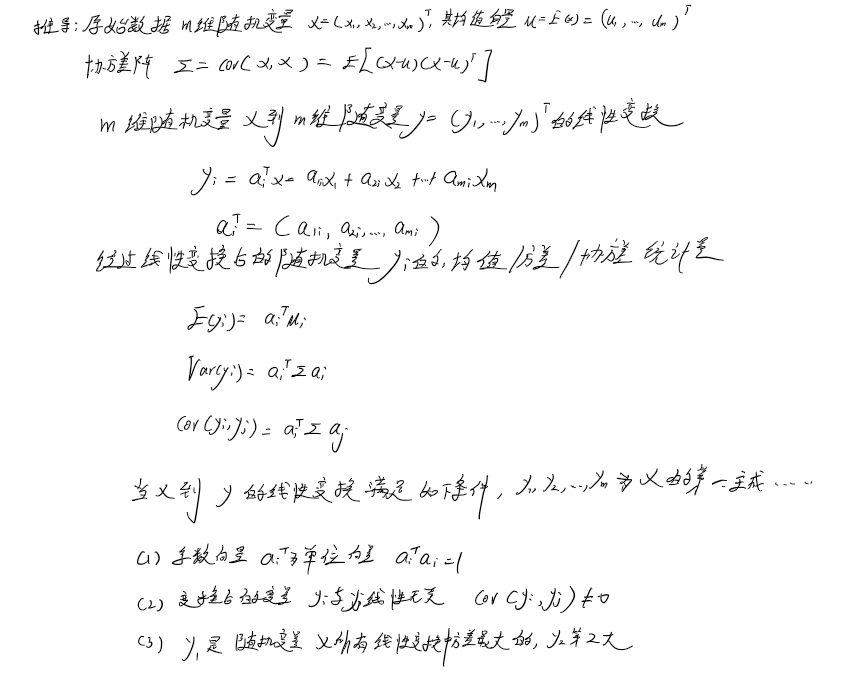 推导:原始数据 m维随机变量 x=(x₁,x₂,…,xₘ)ᵀ,其均值向量 u=E(x)=(u₁,…,uₘ)ᵀ
协方差阵 Σ=cov(x,x)=E[(x-u)(x-u)ᵀ]
m维随机变量 x到 m维随机变量 y=(y₁,…,yₘ)ᵀ的线性变换
yᵢ=aᵢᵀx=a₁ᵢx₁+a₂ᵢx₂+…+aₘᵢxₘ
aᵢᵀ=(a₁ᵢ,a₂ᵢ,…,aₘᵢ)
经过线性变换后的随机变量 yᵢ的,均值/方差/协方差 统计量
E(yᵢ)=aᵢᵀuᵢ
Var(yᵢ)=aᵢᵀΣaᵢ
cov(yᵢ,yⱼ)=aᵢᵀΣaⱼ
当x到y的线性变换满足如下条件,y₁,y₂,…,yₘ为x的第一主成……
(1) 系数向量 aᵢᵀ为单位向量 aᵢᵀaᵢ=1
(2) 变换后的变量 yᵢ与yⱼ线性无关 cov(yᵢ,yⱼ)≠0
(3) y₁是随机变量x所有线性变换中方差最大的,y₂第2大